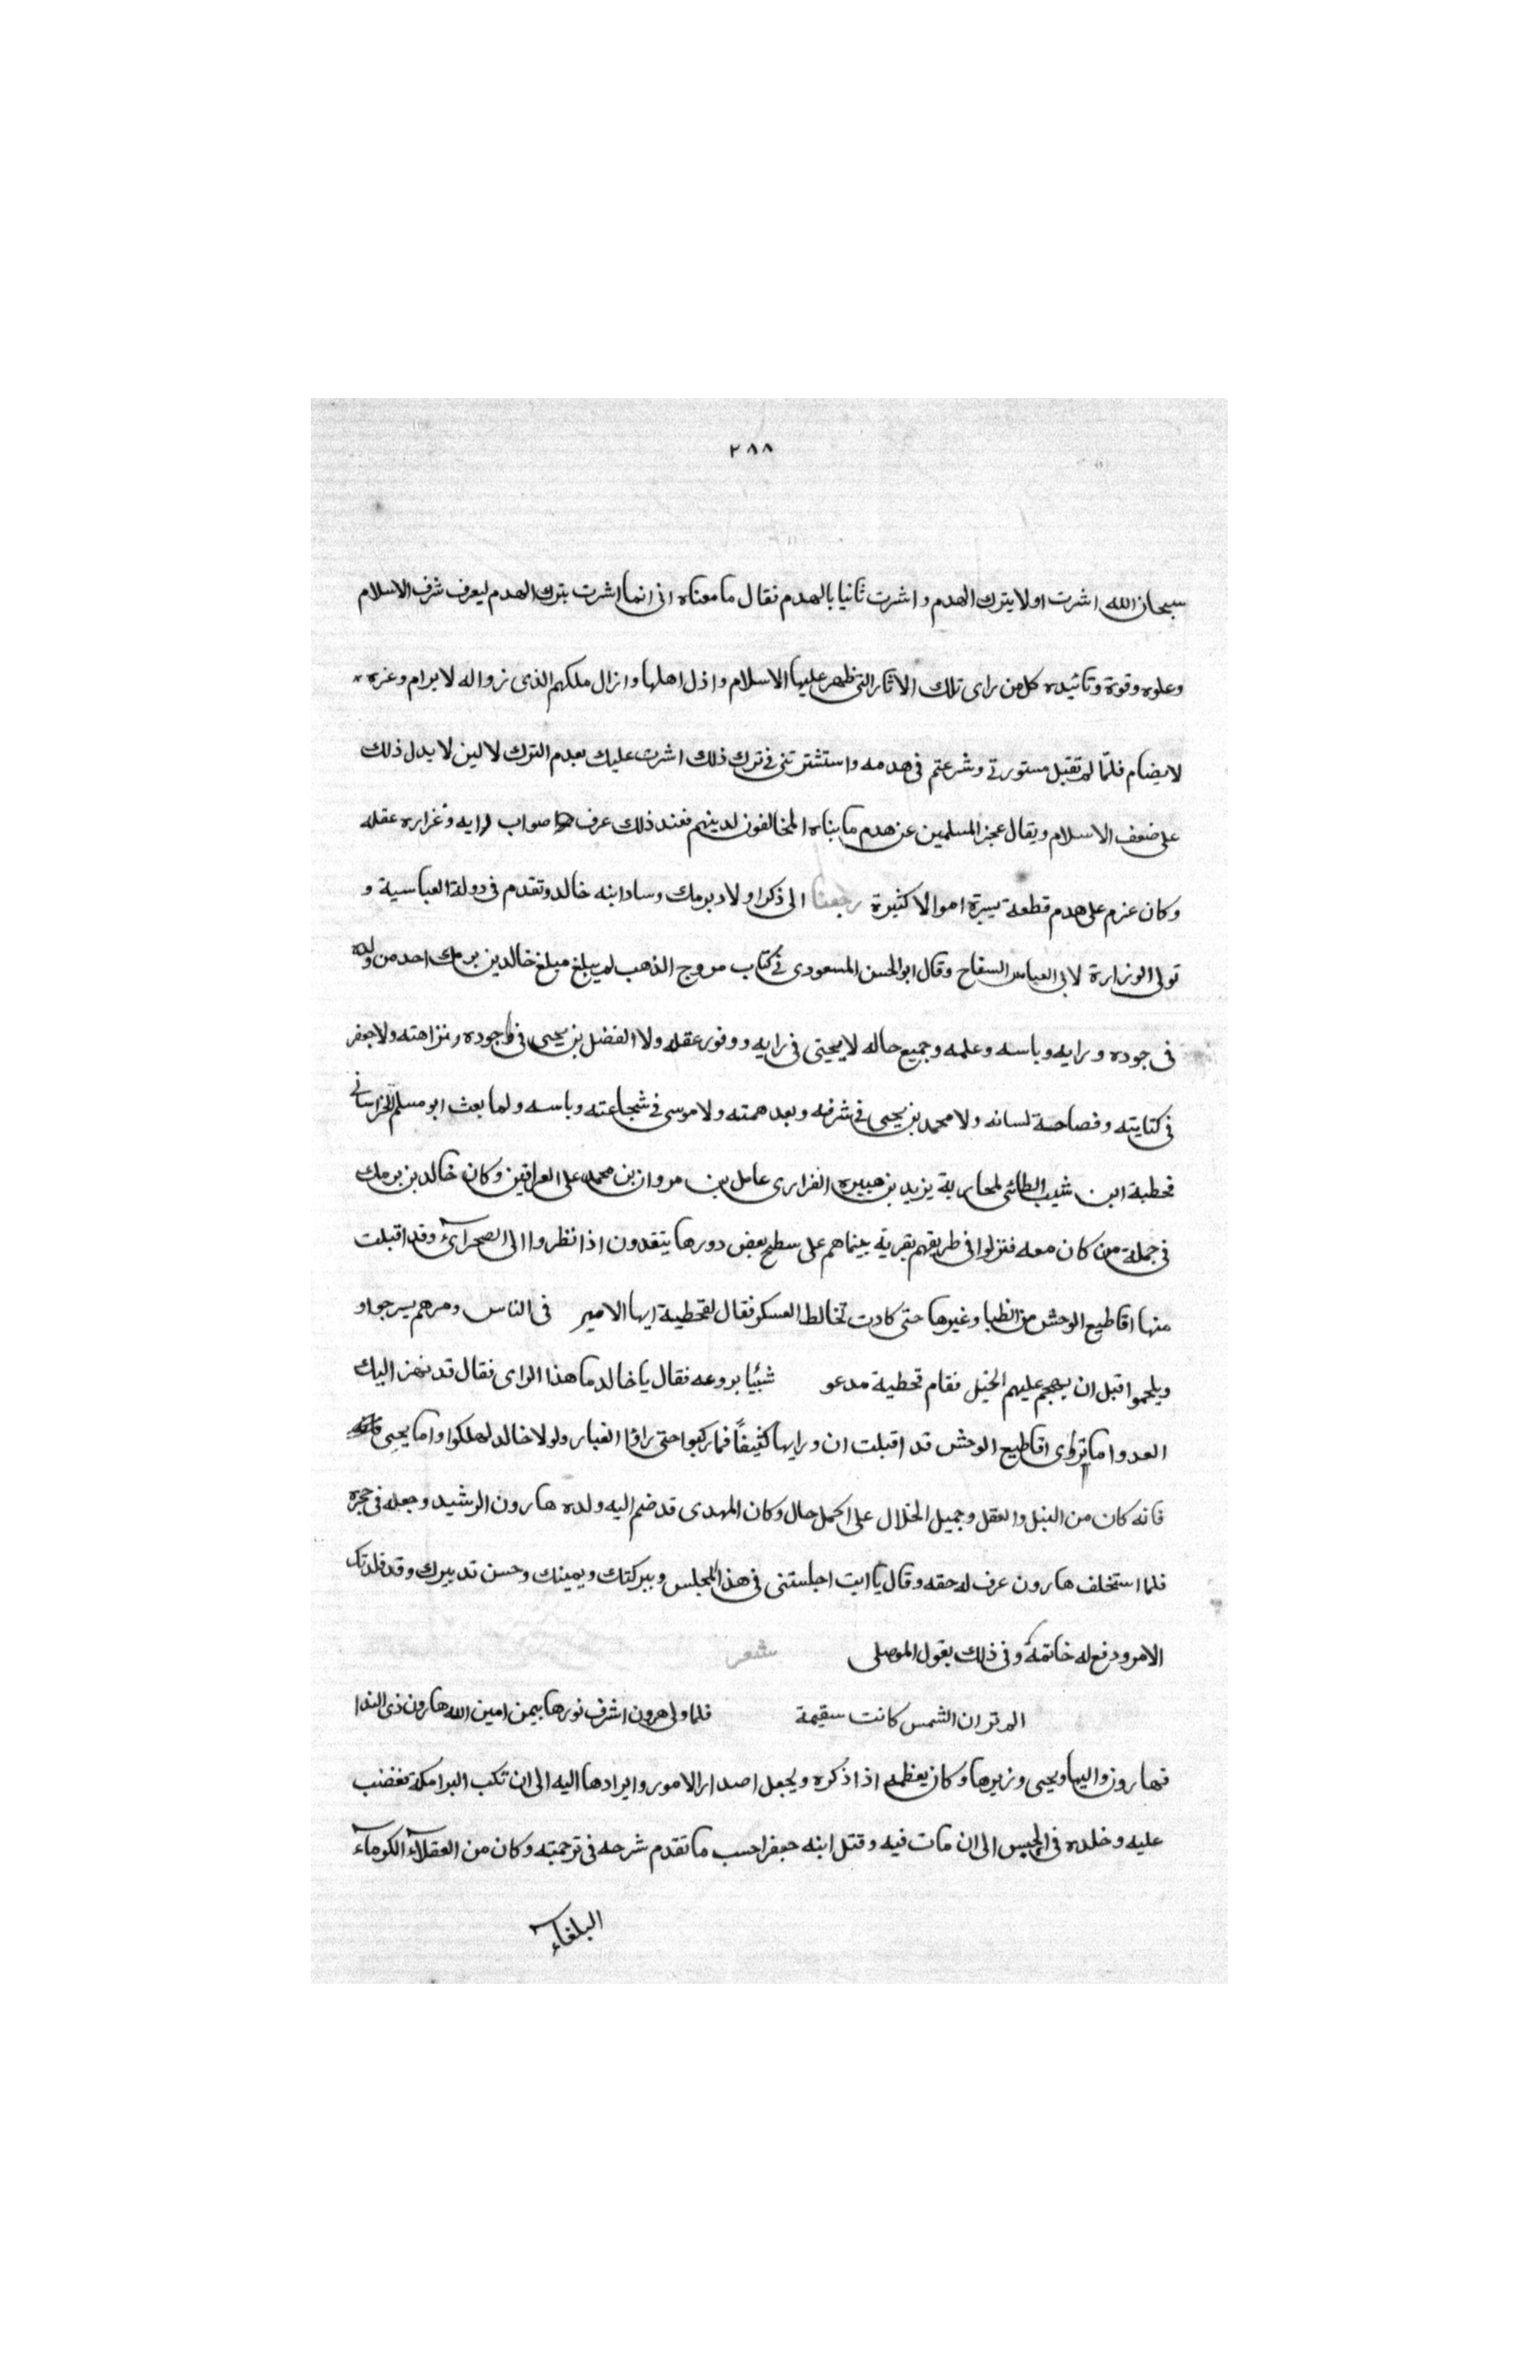 ٢٨٨
سبحان الله اشرت اولا بترك الهدم و اشرت ثانيا بالهدم فقال ما معناه انى انما اشرت بترك الهدم ليعرف شرف الاسلام
وعلوه وقوة وتائيده كل من راى تلك الاثار التى ظهر عليها الاسلام واذل اهلها وازال ملكهم الذى زواله لا يرام وعزه
لايضام فلما لم تقبل مستورتى وشرعتم فى هدمه واستشترتنى فى ترك ذلك اشرت عليك بعدم الترك لا لين لا يدل ذلك
على ضعف الاسلام ويقال عجز المسلمين عن هدم ما بناه المخالفون لدينهم فعند ذلك عرف صواب رايه وغزاره عقله
وكان عزم على هدم قطعة يسيرة اموالا كثيرة رجعنا الى ذكر اولاد برمك وساد ابنه خالد وتقدم فى دولة العباسية و
تولى الوزارة لابى العباس السفاح وقال ابو الحسن المسعودى فى كتاب مروج الذهب لم يبلغ مبلغ خالد بن برمك احد من ولده
فى جوده ورايه وباسه وعلمه وجميع حاله لا يحيى فى رايه ووفور عقله ولا الفضل بن يحيى فى جوده ونزاهته ولا جعفر
فى كتابته وفصاحة لسانه ولا محمد بن يحيى فى شرفه وبعد همته ولا موسى فى شجاعته وباسه ولما بعث ابو مسلم الخراسانى
قحطبة ابن شبيب الطائى لمحاربة يزيد بن هبيره الفزارى عامل بن مروان بن محمد على العراقين وكان خالد بن برمك
فى جملة من كان معه فنزلوا فى طريقهم بقرية بينما هم على سطح بعض دورها يتغدون اذا نظروا الى الصحراء وقد اقبلت
منها اقاطيع الوحش من الظبا وغيرها حتى كادت تخالط العسكر فقال لقحطبة ايها الامير فى الناس ومرهم يسرجوا و
ويلجموا قبل ان يهجم عليهم الخيل فقام قحطبة مدعو شيئا يروعه فقال يا خالد ما هذا الراى فقال قد نهز اليك
العدو اما ترى اقاطيع الوحش قد اقبلت ان ورايها كثيفًا فما ركبوا حتى راوا الغبار ولولا خالد لهلكوا واما يحيى
فانه كان من النبل والعقل وجميل الخلال على اكمل حال وكان المهدى قد ضم اليه ولده هارون الرشيد وجعله فى حجره
فلما استخلف هارون عرف له حقه وقال يا ابت اجلستنى فى هذا المجلس وببركتك ويمينك وحسن تدبيرك وقد قلدتك
الامر ودفع له خاتمة وفى ذلك يقول الموصلى شعر
الم تر ان الشمس كانت سقيمة فلما ولى هرون اشرف نورها بيمن امين الله هارون ذى الندا
فهارون واليها ويحيى وزيرها وكان يعظمه اذا ذكره ويجعل اصدار الامور وايرادها اليه الى ان نكب البرامكة فغضب
عليه وخلده فى الحبس الى ان مات فيه وقتل ابنه جعفرا حسب ما تقدم شرحه فى ترجمته وكان من العقلاء الكرماء
البلغاء